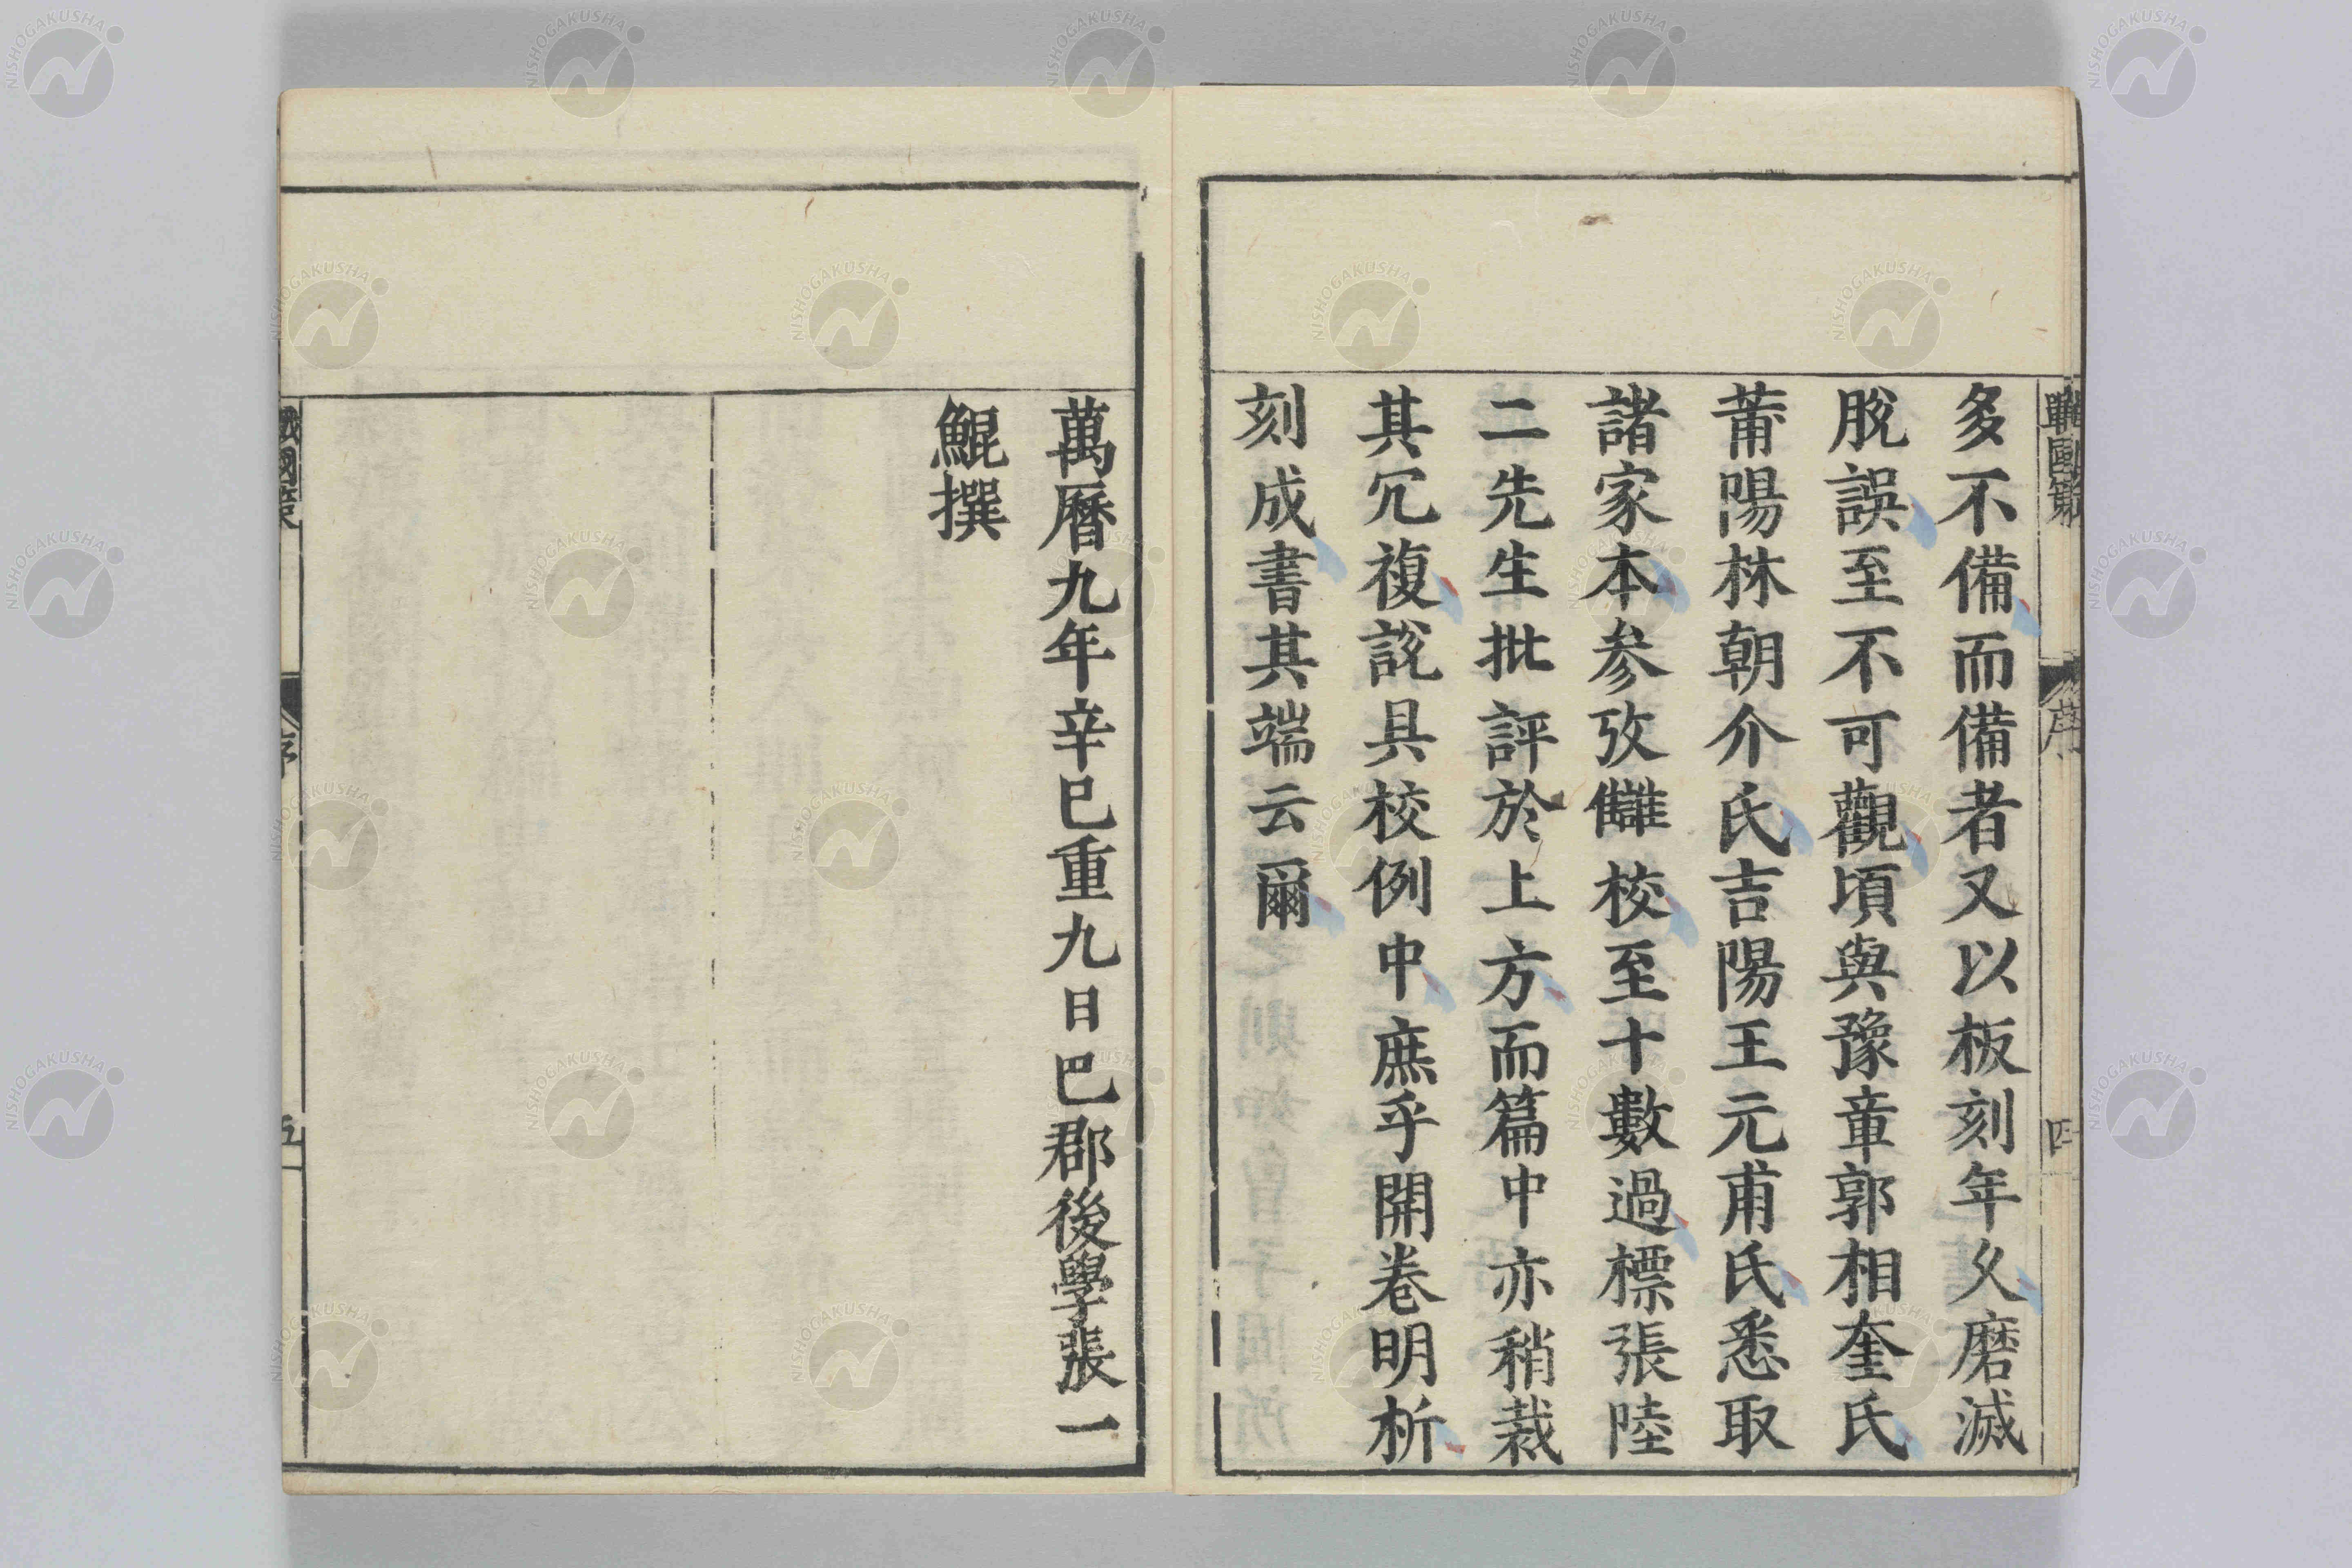 戰國策
序
四
多不備而備者又以板刻年久磨滅
脫誤至不可觀頃與豫章郭相奎氏
莆陽林朝介氏吉陽王元甫氏悉取
諸家本參攷讎校至十數過標張陸
二先生批評於上方而篇中亦稍裁
其冗複說具校例中庶乎開卷明析
刻成書其端云爾
萬曆九年辛巳重九日巴郡後學張一
鯤撰
戰國策
序
五
NISHOGAKUSHA